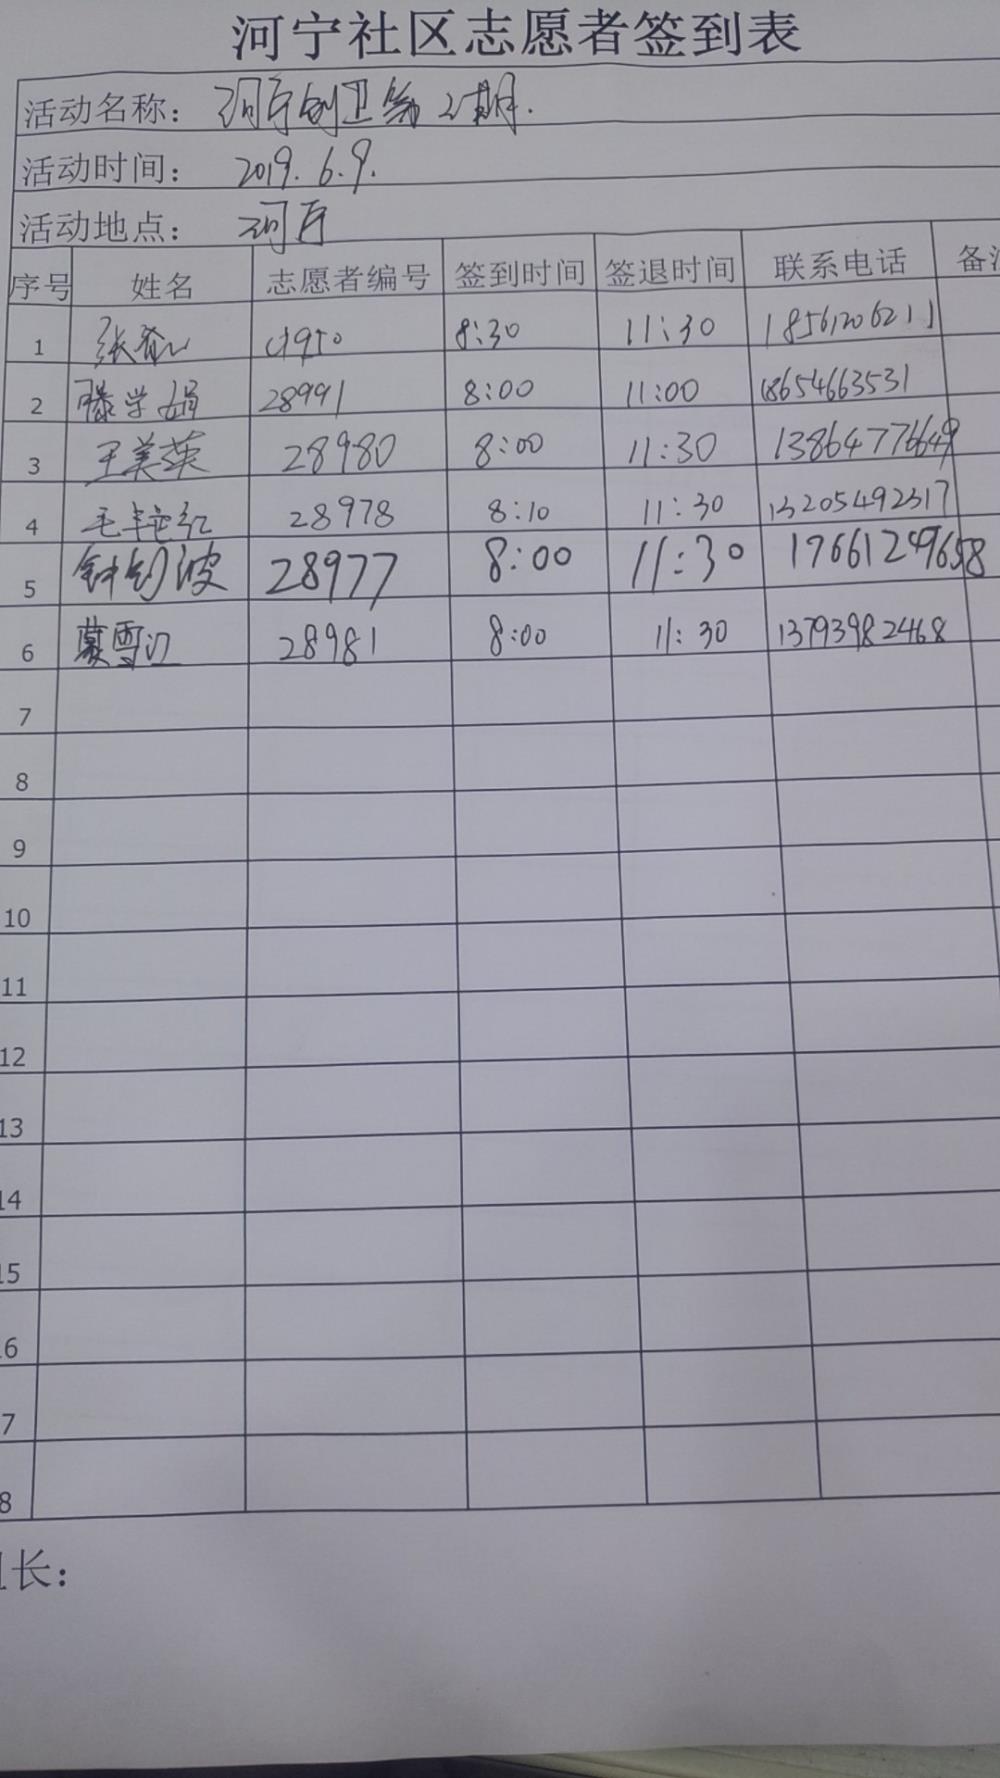 河宁社区志愿者签到表
活动名称： 河宁创卫第2期.
活动时间： 2019.6.9.
活动地点： 河宁
序号 姓名 志愿者编号 签到时间 签退时间 联系电话 备
1 张 8:30 11:30 18561206211
2 滕学娟 28991 8:00 11:00 18654663531
3 王美英 28980 8:00 11:30 13864776649
4 毛 红 28978 8:10 11:30 13205492317
5 钟 波 28977 8:00 11:30 17661249658
6 蒙雪 28981 8:00 11:30 13793982468
7
8
9
10
11
12
13
14
15
6
7
8
长：